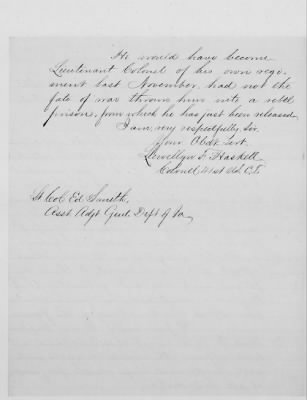 He would have become
Lieutenant Colonel of his own regi-
ment last November, had not the
fate of war thrown him into a rebel
prison, from which he has just been released.
I am, very respectfully, Sir.
Your Obdt. Servt.
Llewellyn F. Haskell
Colonel 41st U.S.C.T.
Lt Col Ed Smith,
Asst. Adjt Genl. Dept of Va,